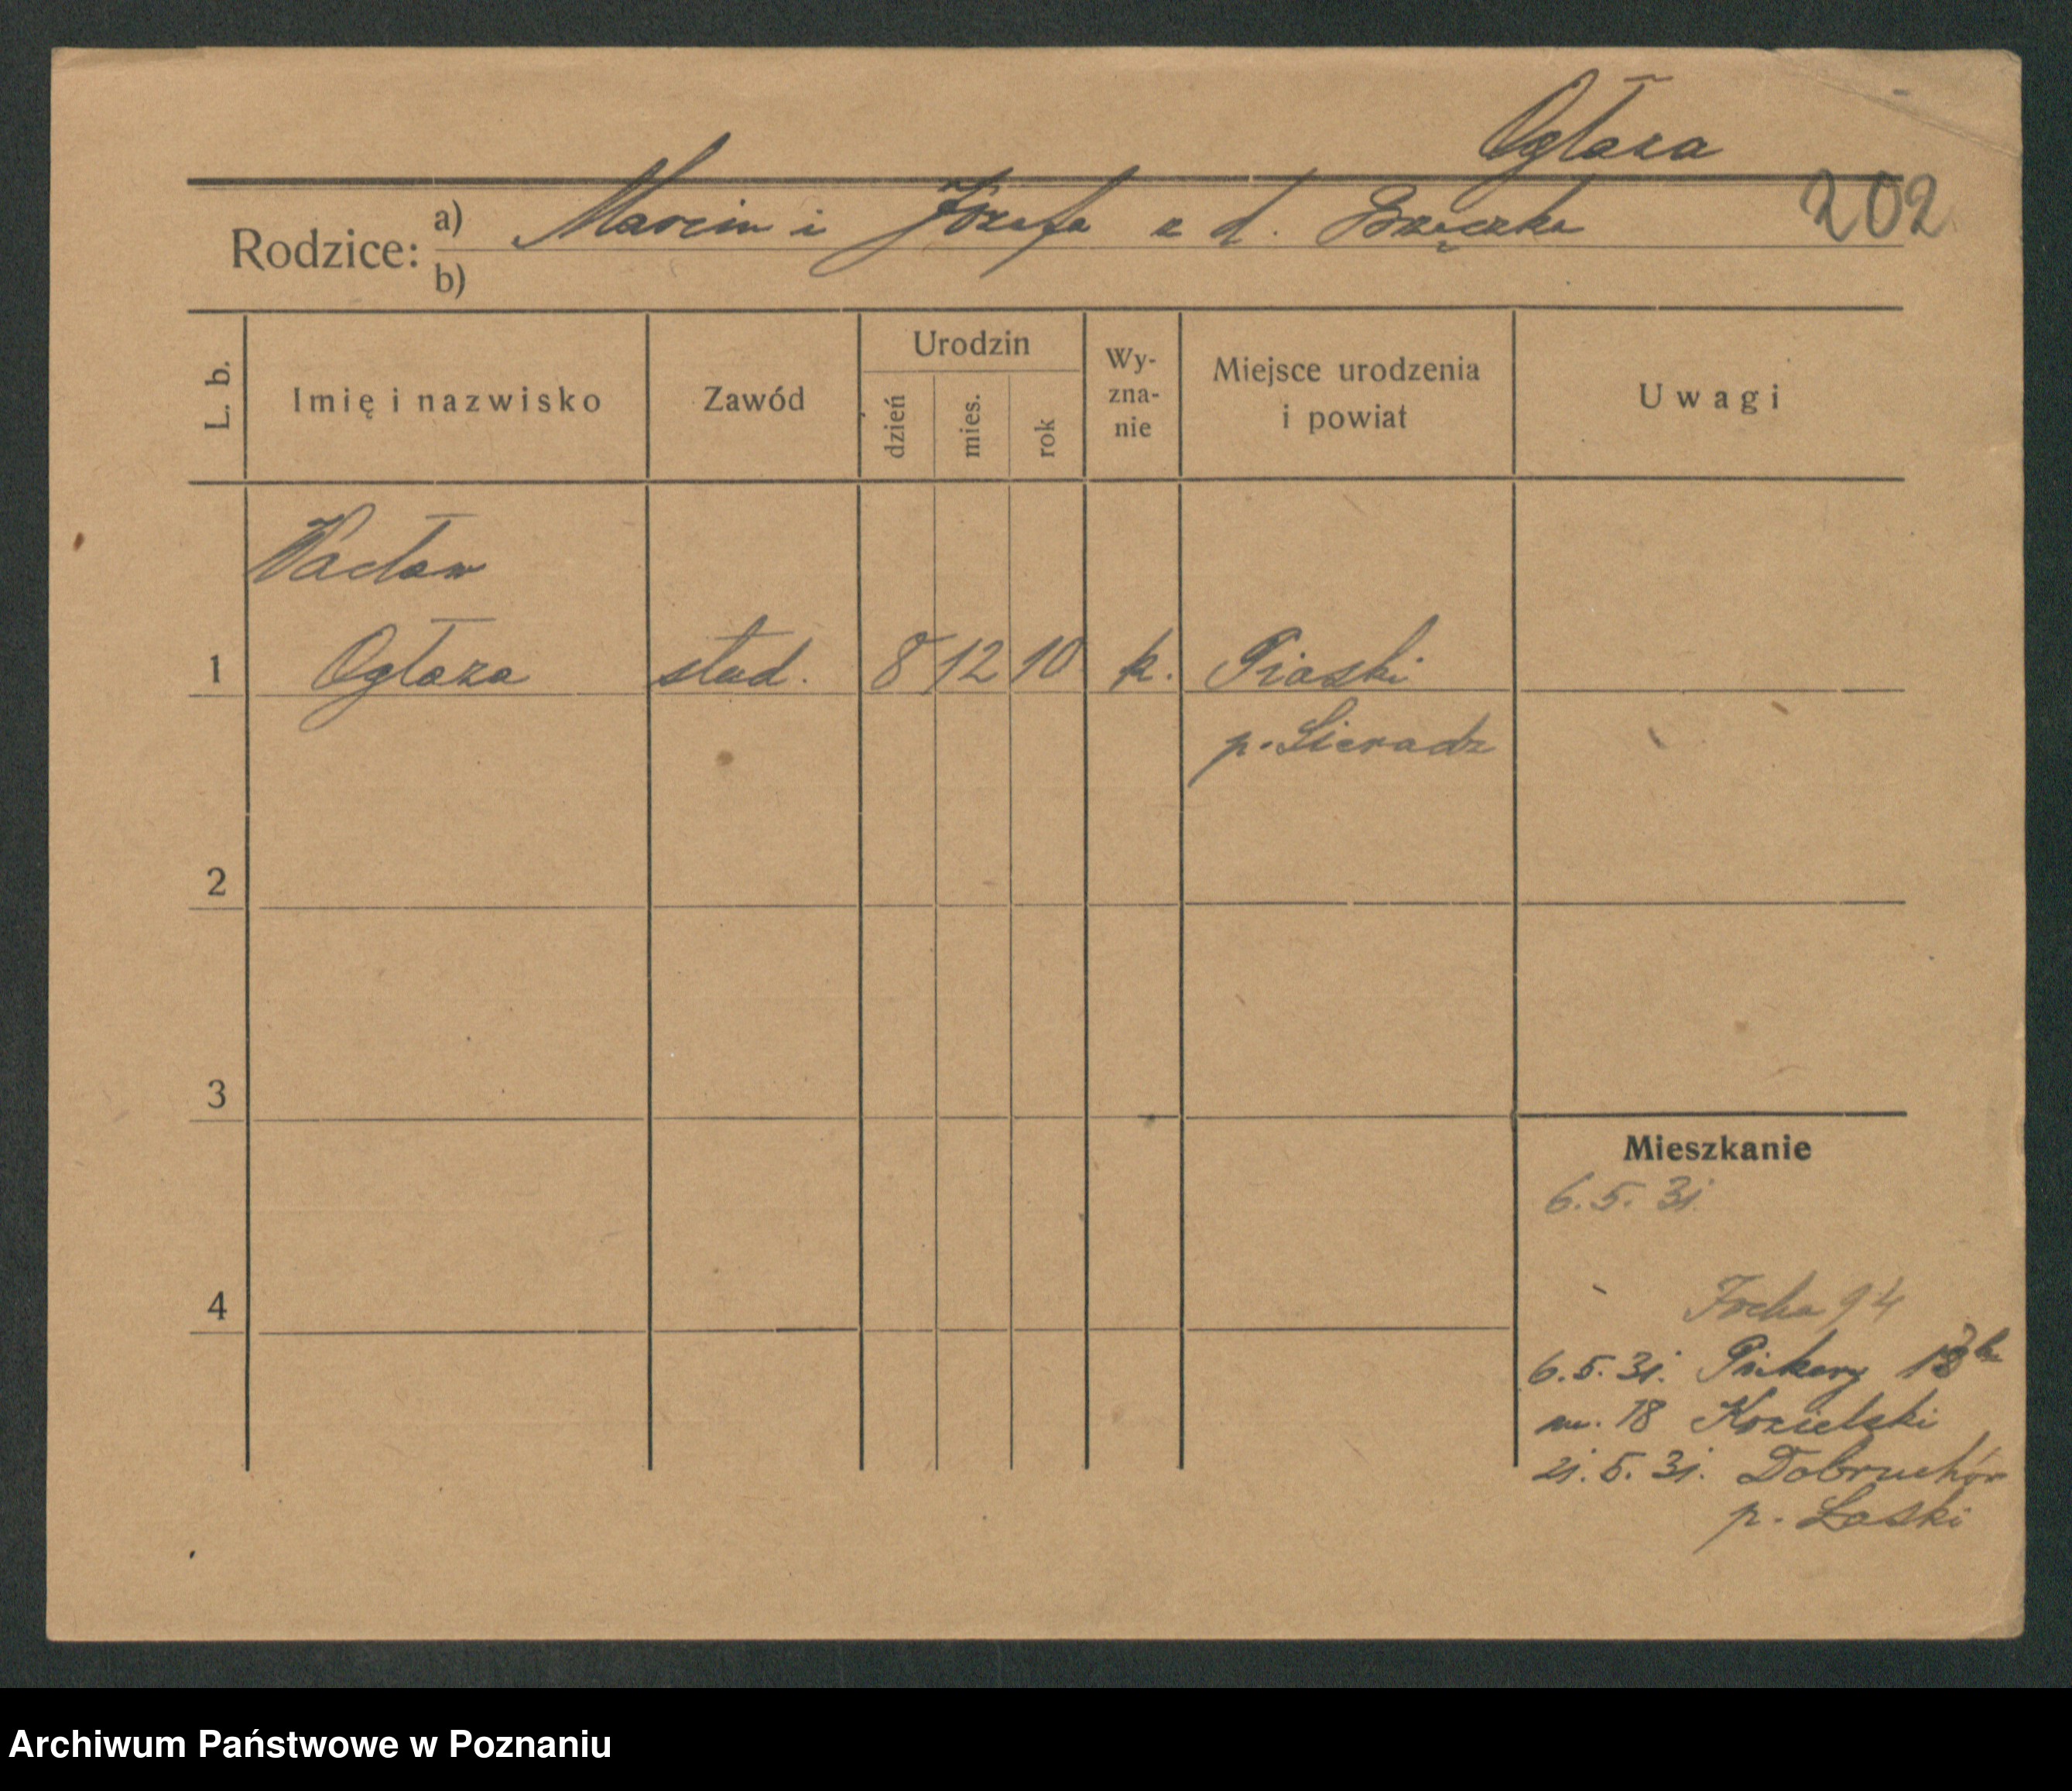 Ogłaza
202
Rodzice: a) Marcin i Józefa z d. Brzęczka
b)
L. b.
Imię i nazwisko
Zawód
Urodzin
dzień
mies.
rok
Wy-
zna-
nie
Miejsce urodzenia
i powiat
Uwagi
Wacław
1 Ogłaza stud. 8 12 10 k. Piaski
p. Sieradz
2
3
4
Mieszkanie
6.5.31.
Focha 94
6.5.31. Piekary
m. 18 Kozielski
21.5.31. Dobruchów
p. Łaski
Archiwum Państwowe w Poznaniu